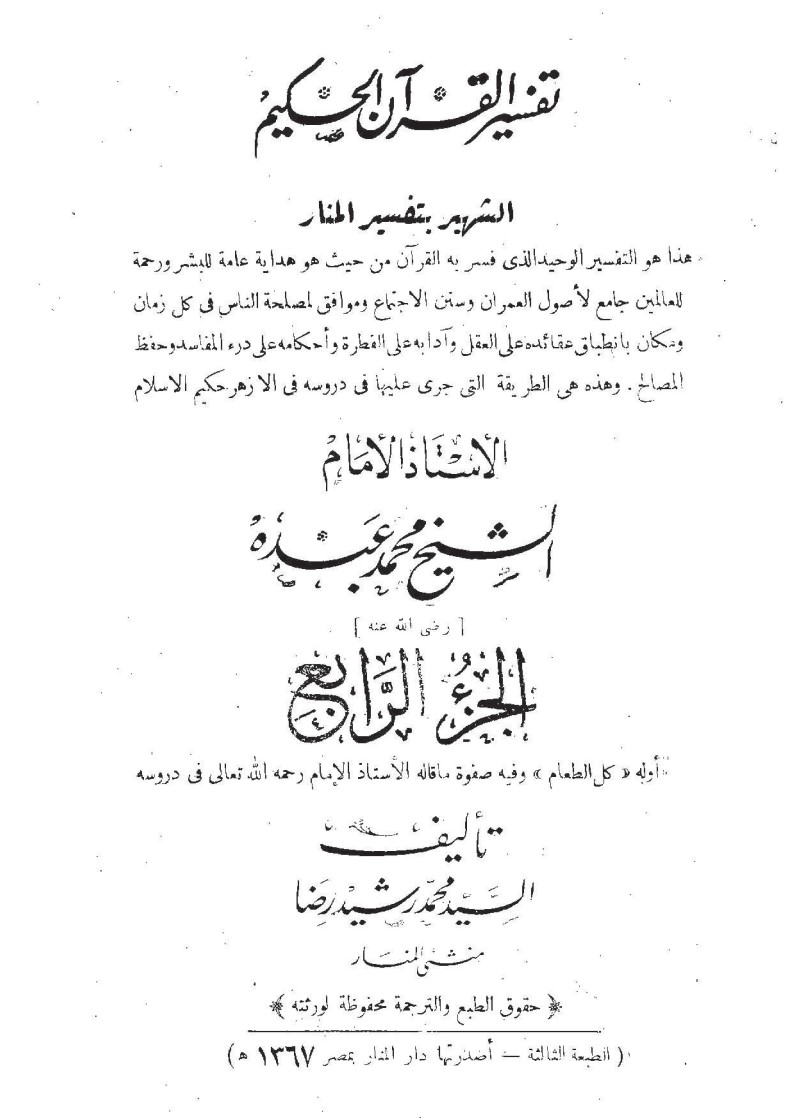 تفسير القرآن الحكيم
الشهير بتفسير المنار
هذا هو التفسير الوحيد الذى فسر به القرآن من حيث هو هداية عامة للبشر ورحمة
للعالمين جامع لأصول العمران وسنن الاجتماع وموافق لمصلحة الناس فى كل زمان
ومكان بانطباق عقائده على العقل وآدابه على الفطرة وأحكامه على درء المفاسد وحفظ
المصالح . وهذه هى الطريقة التى جرى عليها فى دروسه فى الازهر حكيم الاسلام
الأستاذ الإمام
الشيخ محمد عبده
[ رضى الله عنه ]
الجزء الرابع
٤
أوله « كل الطعام » وفيه صفوة ماقاله الأستاذ الإمام رحمه الله تعالى فى دروسه
تأليف
السيد محمد رشيد رضا
منشئ المنار
﴿ حقوق الطبع والترجمة محفوظة لورثته ﴾
( الطبعة الثالثة — أصدرتها دار المنار بمصر ١٣٦٧ ه )